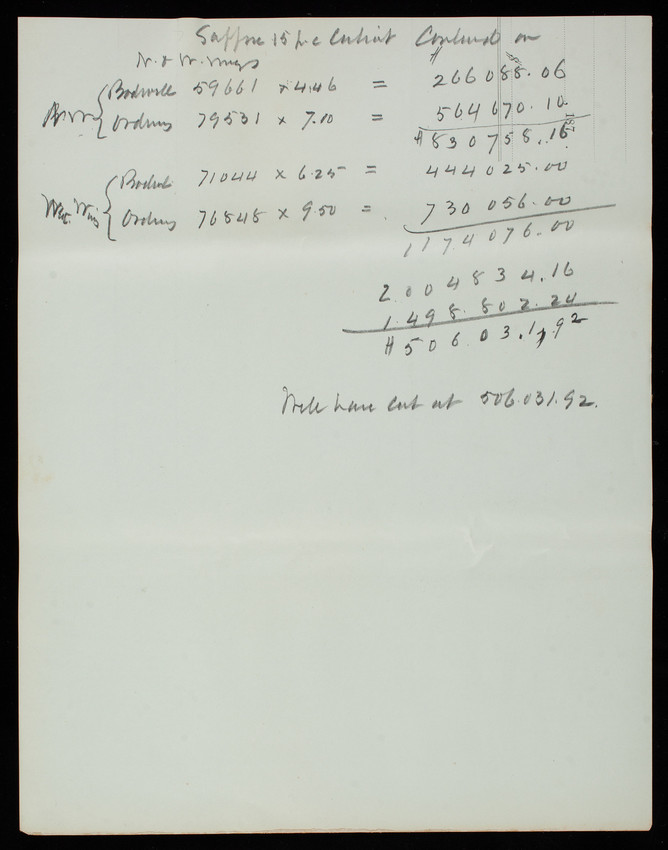 Suppose 15 p.c Contract Continued on
N. & W. Wings
Bodwell 59661 x 4.46 = 266088.06
Ordway 79531 x 7.10 = 564670.10
$830758.16
Bodwell 71044 x 6.25 = 444025.00
West Wing Ordway 76848 x 9.50 = 730056.00
1174076.00
2004834.16
1.498.802.24
$506.031.92
Will have cut out 506.031.92.